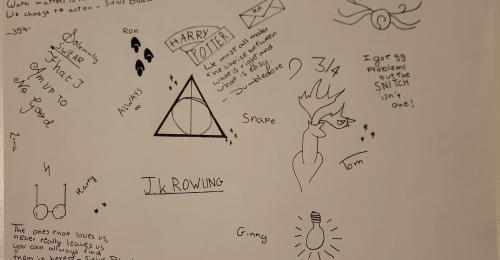 We choose to act on - Sirius Black
-394-
I Solemnly
SWEAR
That I
Am UP TO
No Good
Luna
Ron
ALWAYS
∞
HARRY
POTTER
HM
We must all make
the choice between
what is right and
what is easy
- Dumbledore
Snape
9 3/4
I got 99
problems
but the
SNITCH
isn't
one!
Tom
Harry
J.k.ROWLING
Ginny
The ones that loves us,
never really leaves us
you can always find
them in here - Sirius